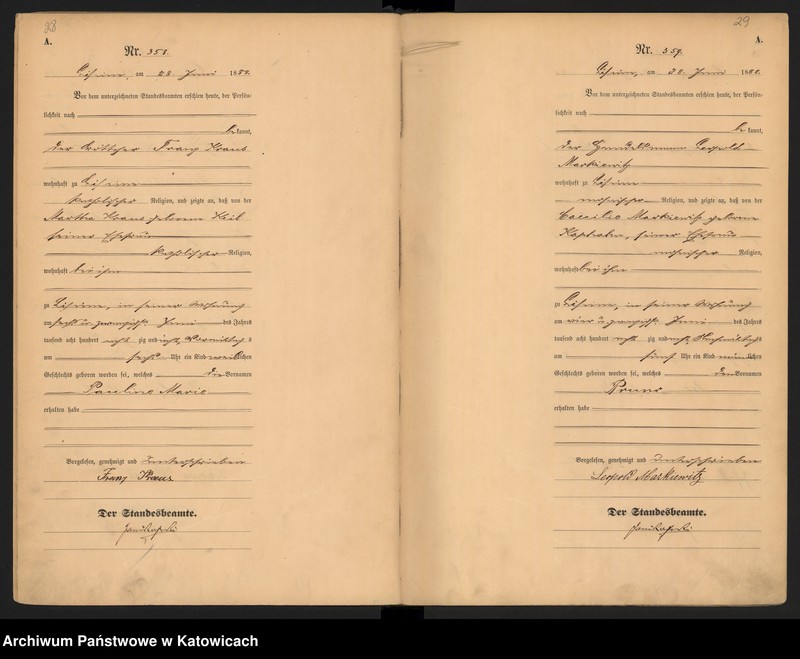 28
A.
Nr. 358.
am 28. Juni 1888.
Vor dem unterzeichneten Standesbeamten erschien heute, der Persön-
lichkeit nach
be kannt,
der Böttcher Franz Kraus
wohnhaft zu
katholischer Religion, und zeigte an, daß von der
Martha Kraus geborene Keil
seiner Ehefrau
katholischer Religion,
wohnhaft bei ihm
zu in seiner Wohnung
am sechs u. zwanzigst. Juni des Jahres
tausend acht hundert acht zig und acht, Vormittags
um sechs Uhr ein Kind weib lichen
Geschlechts geboren worden sei, welches die Vornamen
Pauline Marie
erhalten habe
Vorgelesen, genehmigt und unterschrieben
Franz Kraus
Der Standesbeamte.
29
A.
Nr. 359.
am 28. Juni 1888.
Vor dem unterzeichneten Standesbeamten erschien heute, der Persön-
lichkeit nach
be kannt,
der Handelsmann Leopold
Markiewitz
wohnhaft zu
mosaischer Religion, und zeigte an, daß von der
Caecilie Markiewitz geborene
seiner Ehefrau
mosaischer Religion,
wohnhaft bei ihm
zu in seiner Wohnung
am vier u. zwanzigst. Juni des Jahres
tausend acht hundert acht zig und acht, Nachmittags
um fünf Uhr ein Kind männ lichen
Geschlechts geboren worden sei, welches den Vornamen
Bruno
erhalten habe
Vorgelesen, genehmigt und unterschrieben
Leopold Markiewitz
Der Standesbeamte.
Archiwum Państwowe w Katowicach